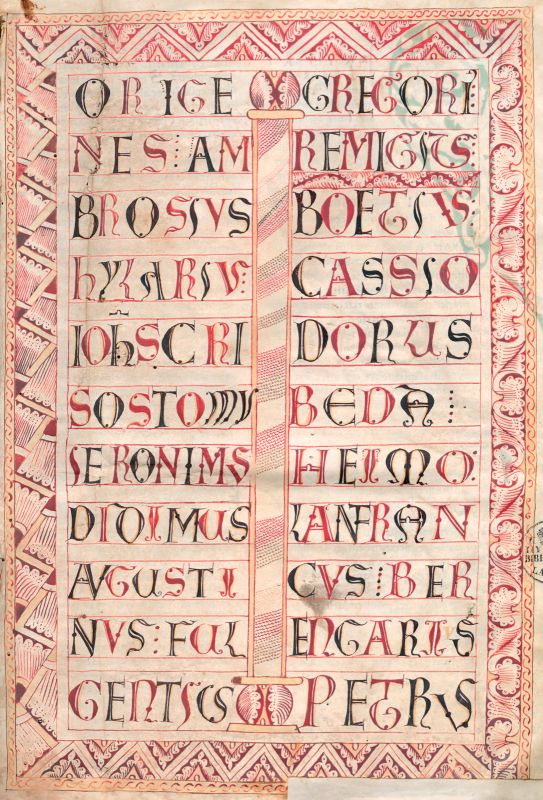 ORIGE
NES⋮AM
BROSIVS
HYLARIV:
IOH̅SCRI
SOSTOMVS
IERONIMS
DIDIMUS
AVGUSTI
NVS⋮FUL
GENTIUS
GREGORI⋮
REMIGIUS⋮
BOETIVS:
CASSIO
DORUS
BEDA⋮
HEIMO:
LANFRAN
CVS⋮BER
ENGARIS
PETRUS